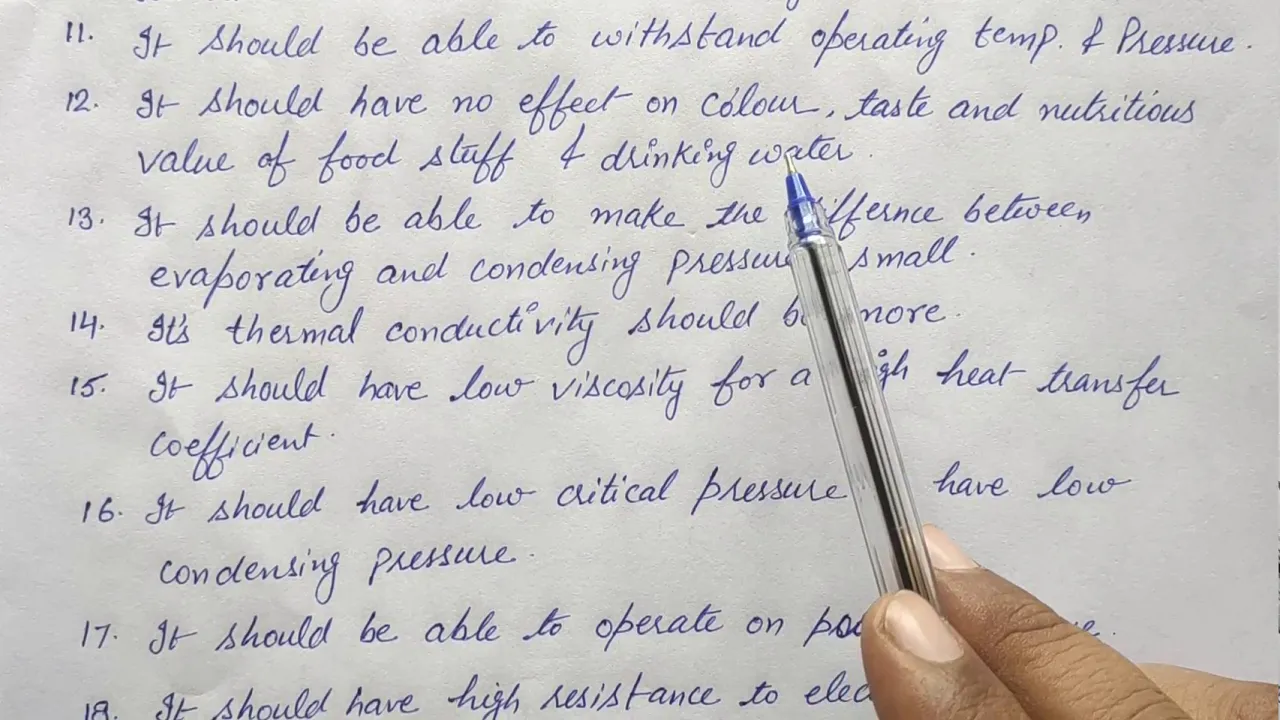 11. It should be able to withstand operating temp. & Pressure.
12. It should have no effect on colour, taste and nutritious
value of food stuff & drinking water.
13. It should be able to make the differnce between
evaporating and condensing pressure small.
14. It's thermal conductivity should be more.
15. It should have low viscosity for a high heat transfer
coefficient.
16. It should have low critical pressure have low
condensing pressure.
17. It should be able to operate on
18. It should have high resistance to